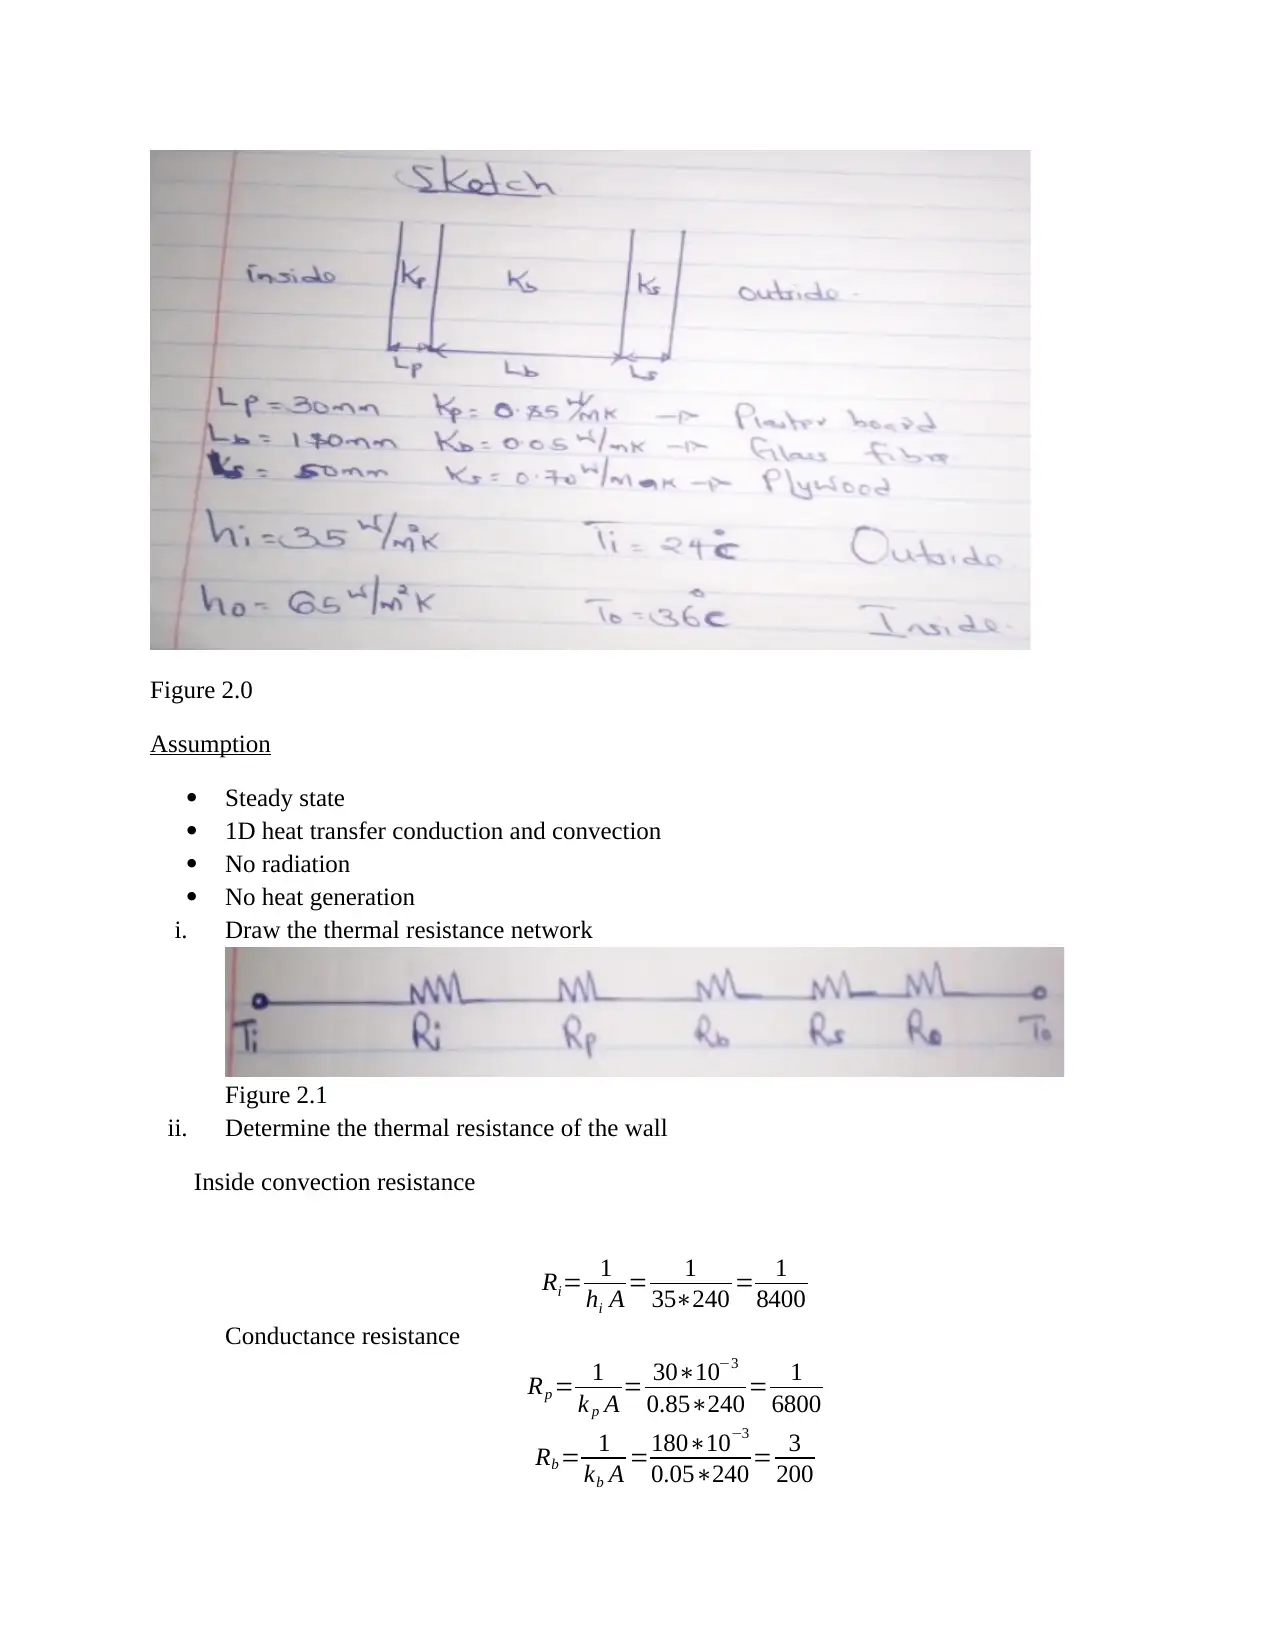 Sketch
inside Kp Kb Ks outside.
Lp Lb Ls
Lp = 30mm Kp = 0.85 W/mK → Plaster board
Lb = 180mm Kb = 0.05 W/mK → Glass fibre
Ls = 50mm Ks = 0.70 W/mK → Plywood
hi = 35 W/m²K Ti = 24°C Outside
ho = 65 W/m²K To = 36°C Inside.
Figure 2.0
Assumption
• Steady state
• 1D heat transfer conduction and convection
• No radiation
• No heat generation
i. Draw the thermal resistance network
Ti Ri Rp Rb Rs Ro To
Figure 2.1
ii. Determine the thermal resistance of the wall
Inside convection resistance
R_i = 1/(h_i A) = 1/(35∗240) = 1/8400
Conductance resistance
R_p = 1/(k_p A) = 30∗10⁻³/(0.85∗240) = 1/6800
R_b = 1/(k_b A) = 180∗10⁻³/(0.05∗240) = 3/200